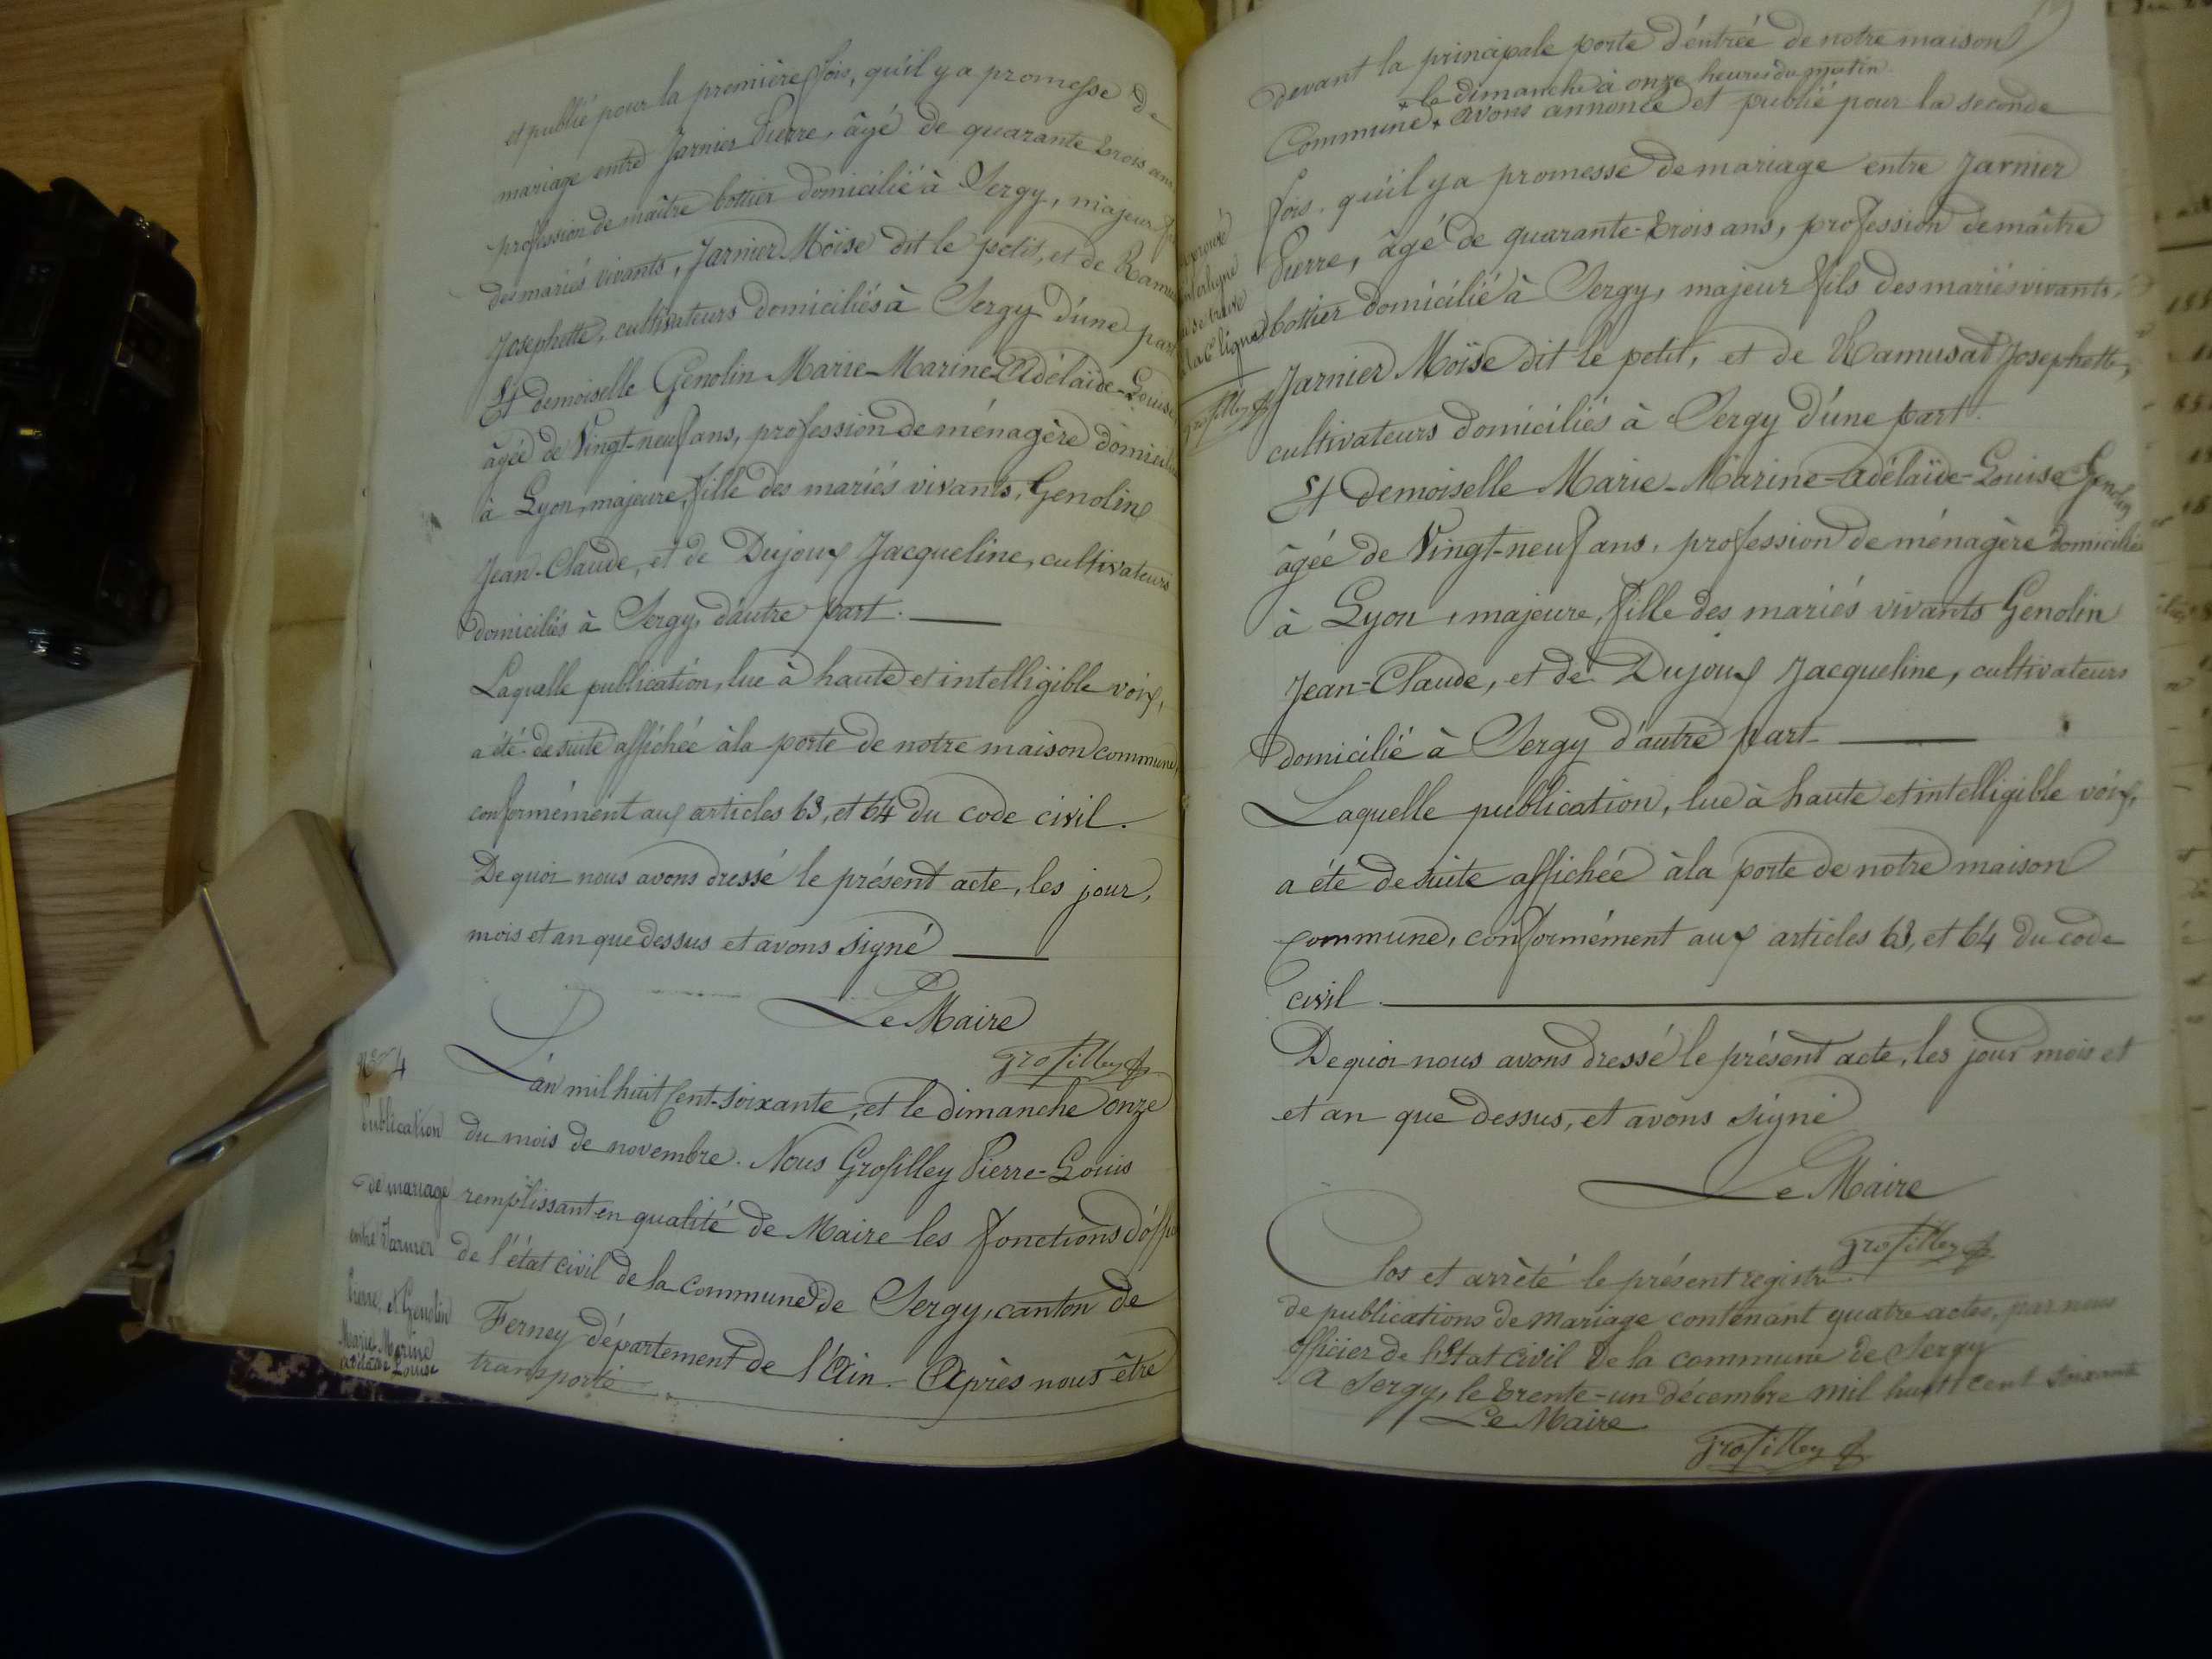 et publié pour la première fois, qu'il y a promesse de
mariage entre Jarnier Pierre, âgé de quarante trois ans
profession de maître bottier domicilié à Sergy, majeur
des mariés vivants, Jarnier Moïse dit le petit, et de
Josephette, cultivateurs domiciliés à Sergy d'une part
Et demoiselle Genolin Marie-Marine-Adélaïde-Louise
âgée de Vingt-neuf ans, profession de ménagère
à Lyon, majeure, fille des mariés vivants, Genolin
Jean-Claude, et de Dujoux Jacqueline, cultivateurs
domiciliés à Sergy, d'autre part.
Laquelle publication, lue à haute et intelligible voix,
a été de suite affichée à la porte de notre maison commune,
conformément aux articles 63, et 64 du code civil.
De quoi nous avons dressé le présent acte, les jour,
mois et an que dessus et avons signé
Le Maire
Grosilley
N° 4
Publication
de mariage
entre Jarnier
Pierre, et Genolin
Marie-Marine
Adélaïde Louise
L'an mil huit cent-soixante, et le dimanche onze
du mois de novembre. Nous Grosilley Pierre-Louis
remplissant en qualité de Maire les fonctions
de l'état civil de la commune de Sergy, canton de
Ferney département de l'Ain. Après nous être
transporté
devant la principale porte d'entrée de notre maison
+ le dimanche à onze heures du matin
Commune, + avons annoncé et publié pour la seconde
fois, qu'il y a promesse de mariage entre Jarnier
Pierre, âgé de quarante-trois ans, profession de maître
bottier domicilié à Sergy, majeur fils des mariés vivants,
Jarnier Moïse dit le petit, et de Ramusat Josephette,
cultivateurs domiciliés à Sergy d'une part.
Et demoiselle Marie-Marine-Adélaïde-Louise Genolin
âgée de Vingt-neuf ans, profession de ménagère domiciliée
à Lyon, majeure, fille des mariés vivants Genolin
Jean-Claude, et de Dujoux Jacqueline, cultivateurs
domicilié à Sergy d'autre part
Laquelle publication, lue à haute et intelligible voix,
a été de suite affichée à la porte de notre maison
commune, conformément aux articles 63, et 64 du code
civil.
De quoi nous avons dressé le présent acte, les jour mois et
et an que dessus, et avons signé
Le Maire
Grosilley
Clos et arrêté le présent registre
de publications de mariage contenant quatre actes, par nous
officier de l'état civil de la commune de Sergy
A Sergy, le trente-un décembre mil huit cent soixante
Le Maire
Grosilley